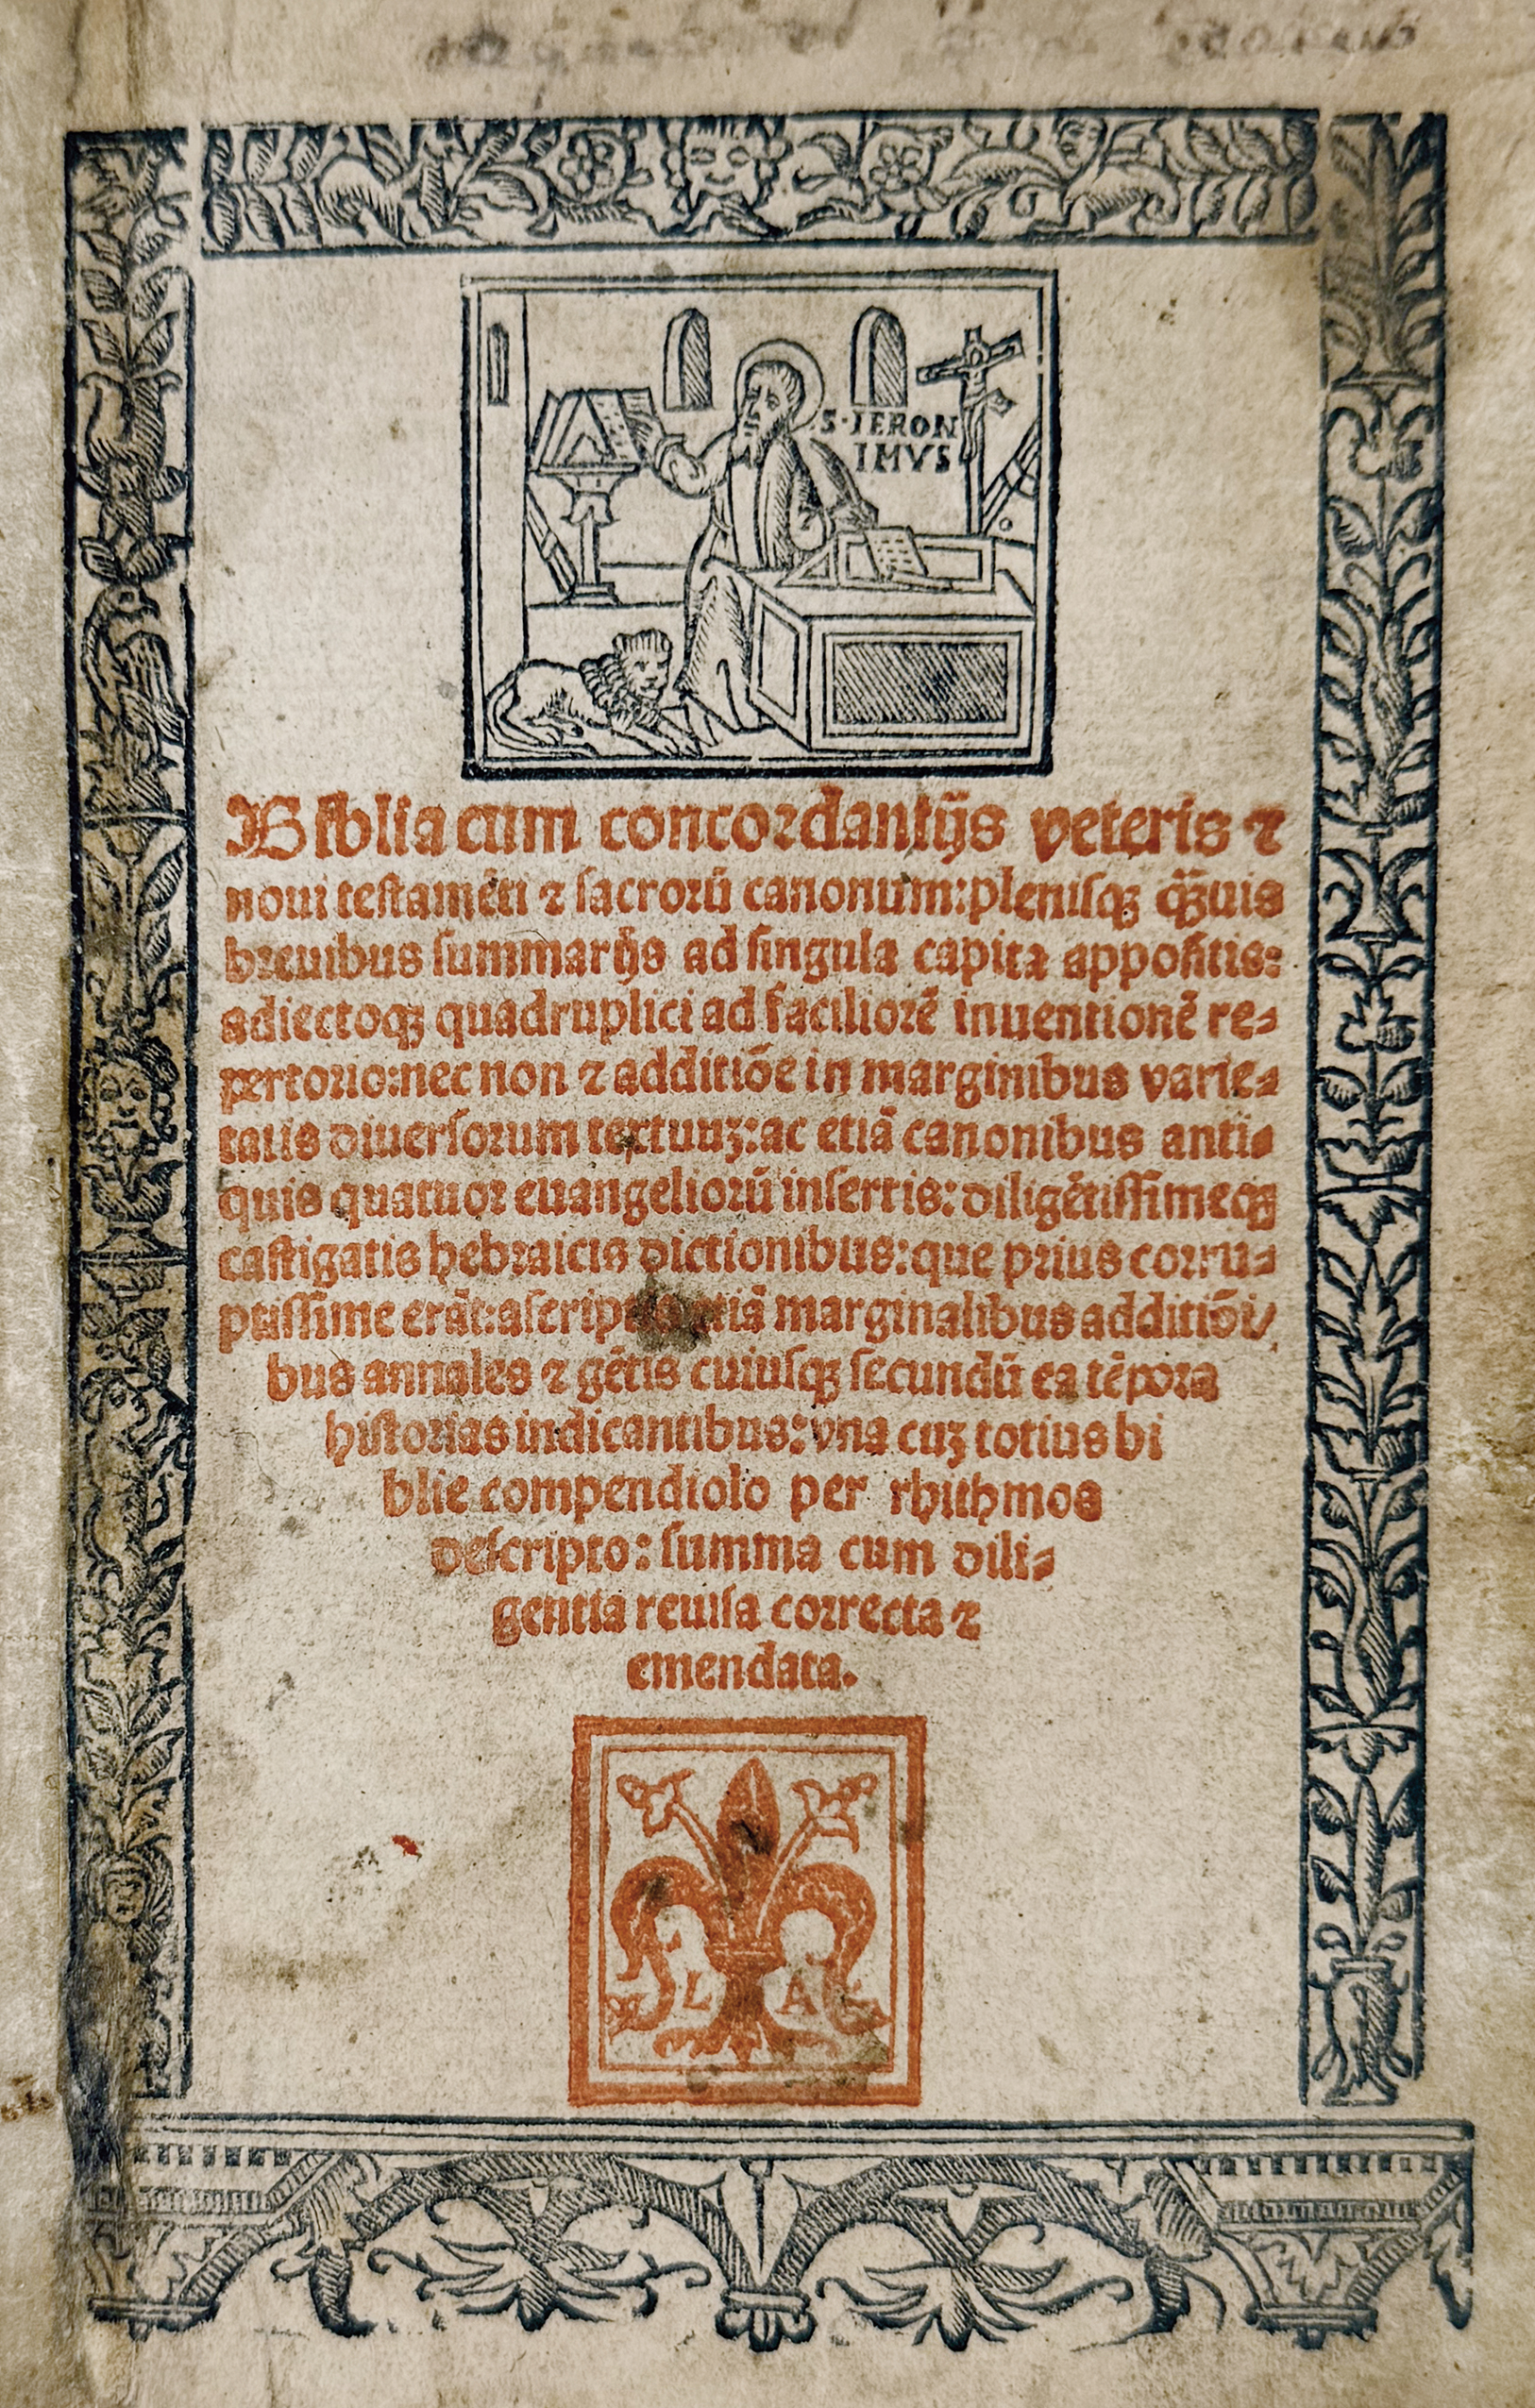 S·IERON
IMVS
Biblia cum concordantijs veteris ⁊
noui testamēti ⁊ sacrorū canonum: plenisqꝫ qͣꝫuis
breuibus summarijs ad singula capita appositis:
adiectoqꝫ quadruplici ad faciliorē inuentionē re-
pertorio: nec non ⁊ additiōe in marginibus varie-
tatis diuersorum textuuꝫ: ac etiā canonibus anti-
quis quatuor euangeliorū insertis: diligētissimeqꝫ
castigatis hebraicis dictionibus: que prius corru-
ptissime erāt: marginalibus additiōi/
bus annales ⁊ gētis cuiusqꝫ secundū ea tēpora
historias indicantibus: vna cuꝫ totius bi
blie compendiolo per rhithmos
descripto: summa cum dili-
gentia reuisa correcta ⁊
emendata.
L A